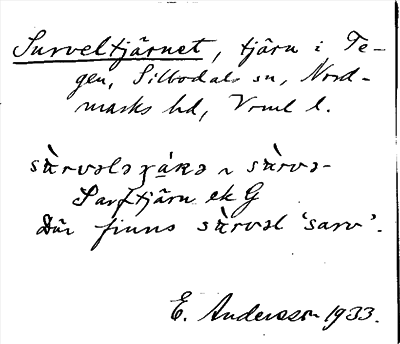 Surveltjärnet, tjärn i Te-
gen, Silbodals sn, Nord-
marks hd, Vrml l.
Sarftjärn ek G
Där finns sàrvəl 'sarv'.
E. Andersson 1933.